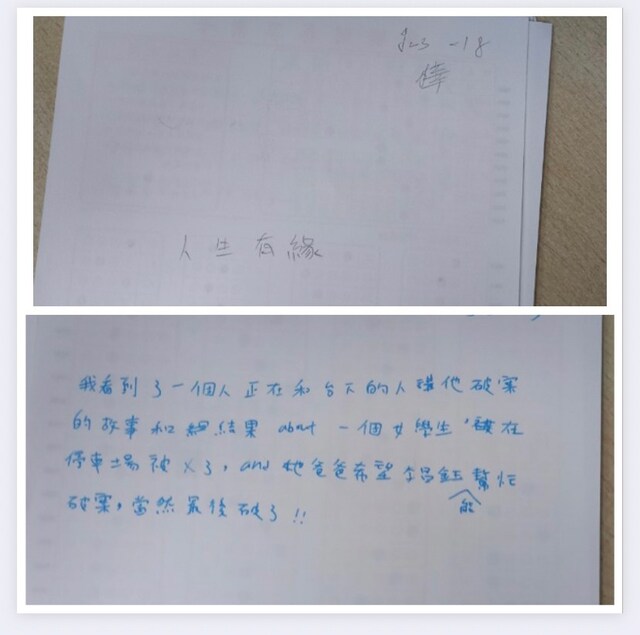 123 -18
人生有緣
我看到了一個人正在和台下的人講他破案
的故事和結果 about 一個女學生,在
停車場被X了, and 她爸爸希望李昌鈺能幫忙
破案,當然最後破了!!